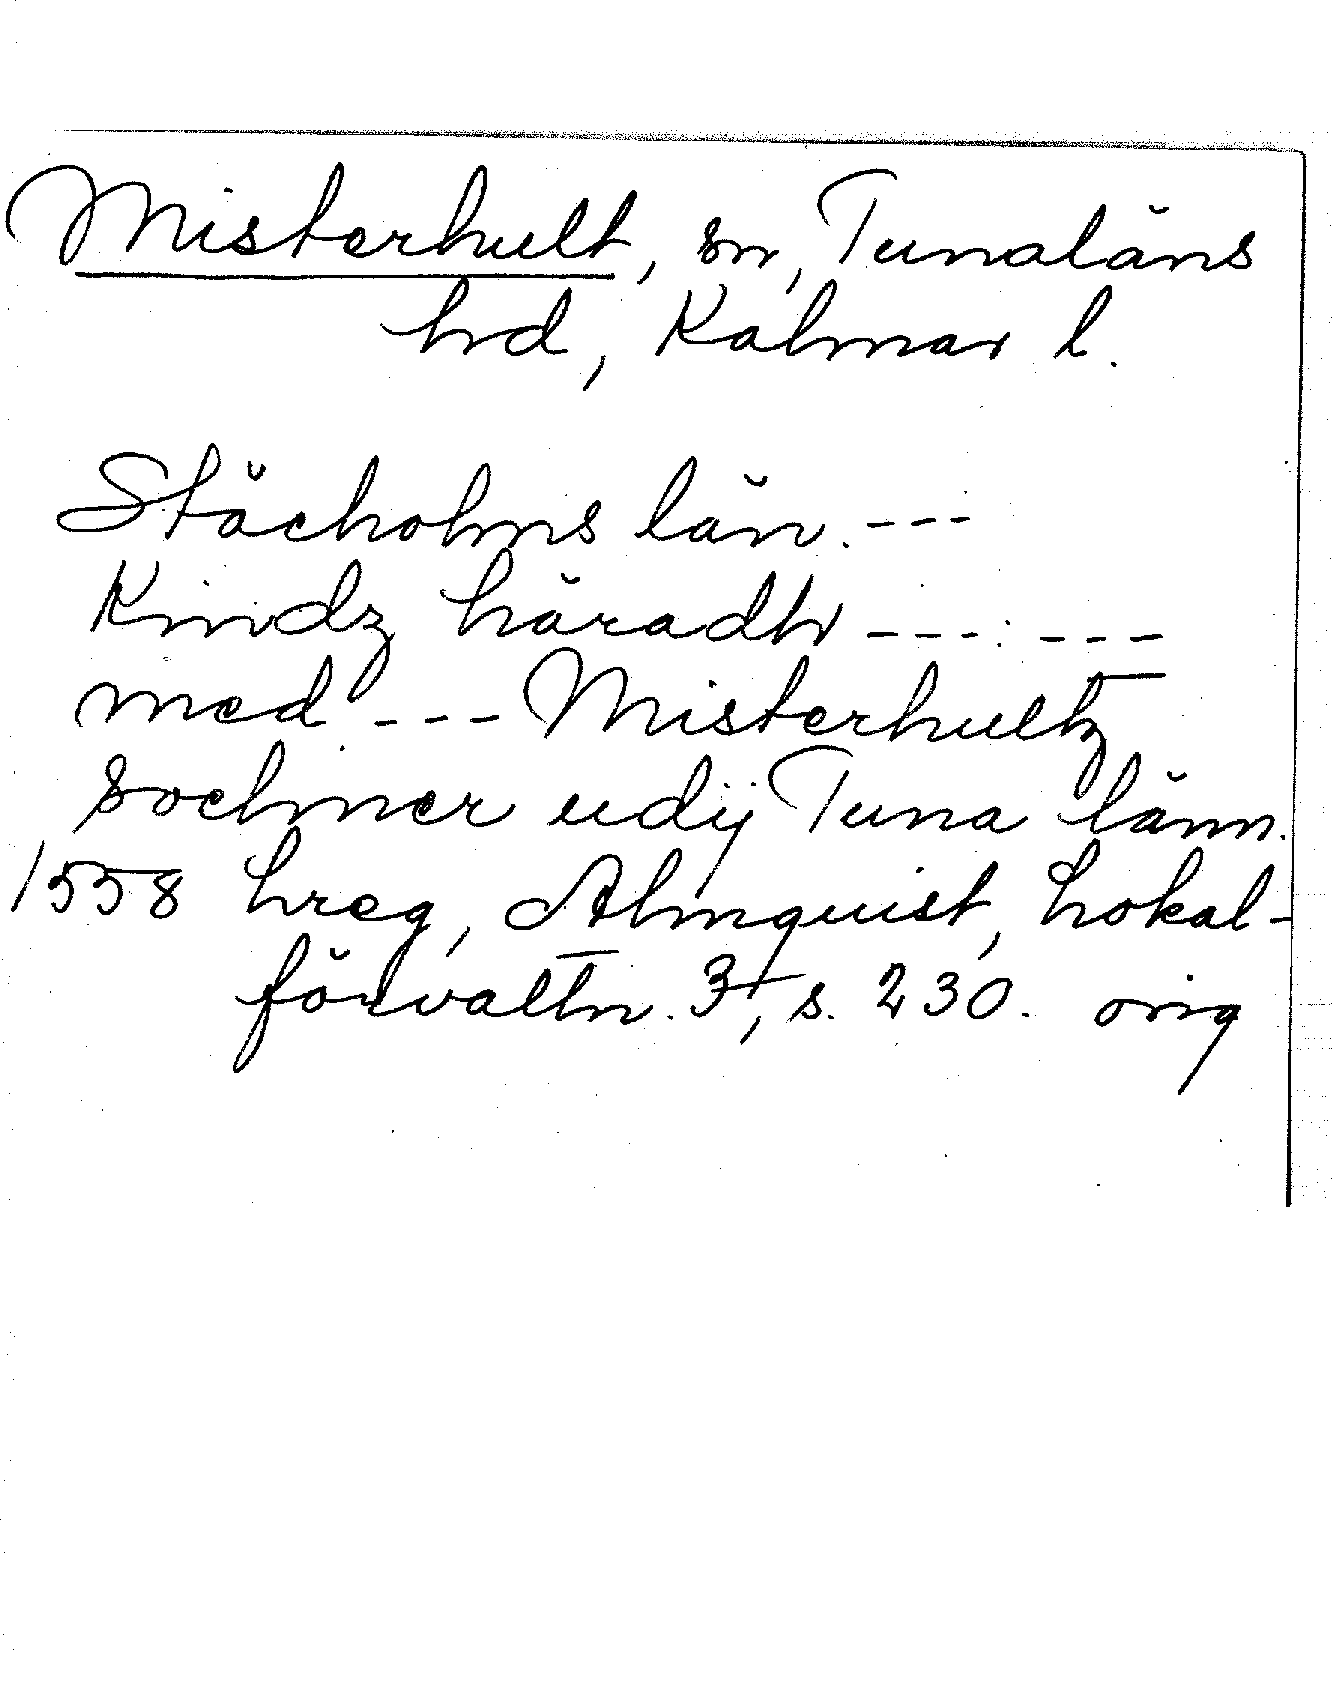 Misterhult, sn, Tunaläns
hd, Kalmar l.
Stächolms län. ---
Kindz häradh --- : ---
med --- Misterhultz
Sochner udij Tuna länn.
1558 hreg, Almquist, Lokal-
förvaltn. 3, s. 230. orig